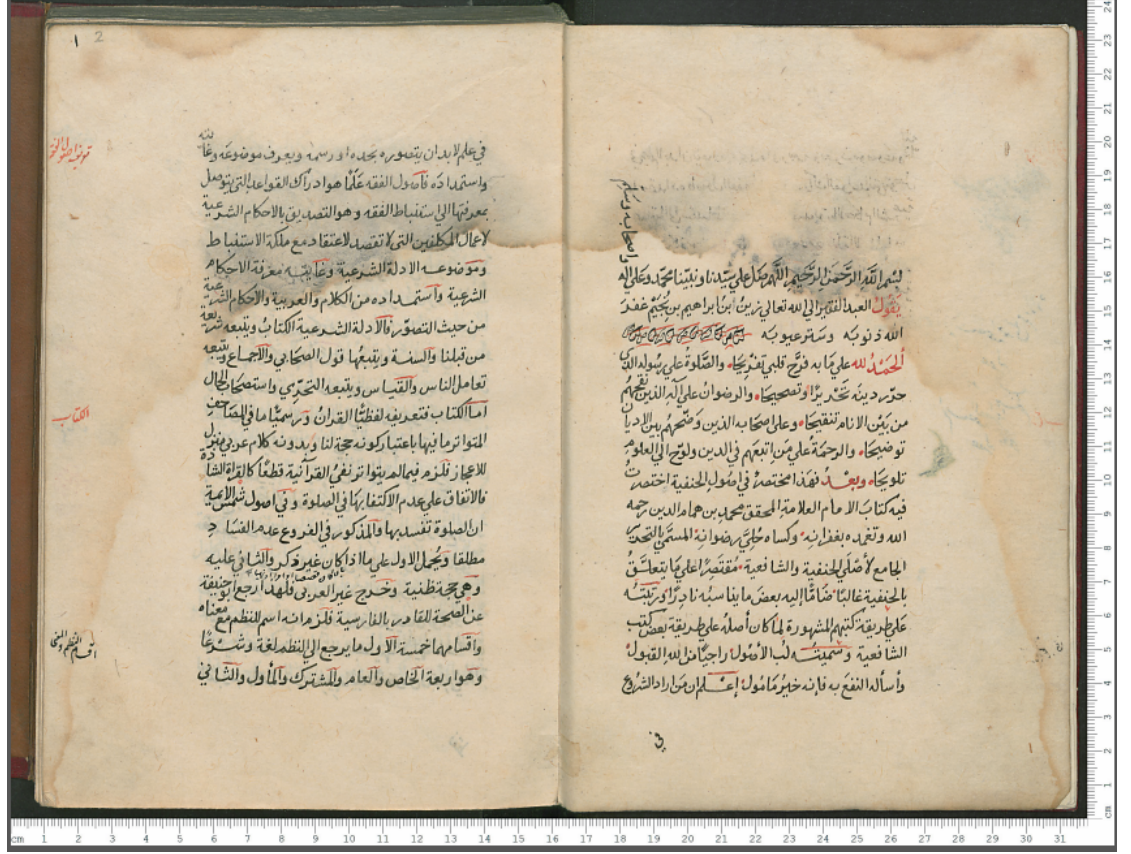 بسم الله الرحمن الرحيم اللهم صل علي سيدنا ونبينا محمد وعلي اله
واصحابه وسلم
يقول العبد الفقير الي الله تعالي زين ابن ابراهيم بن نجيم غفر
الله ذنوبه وستر عيوبه
الحمد لله علي ما به فرج قلبي تفريجا والصلوة علي رسوله الذي
حرر دينه تحريرا وتصحيحا والرضوان علي آله الذين نقحهم
من بين الانام تنقيحا وعلي اصحابه الذين وضحهم بين الاديان
توضيحا والرحمة علي من اتبعهم في الدين ولوح الي العلوم
تلويحا وبعد فهذا مختصر في اصول الحنفية اختصرت
فيه كتاب الامام العلامة المحقق محمد بن همام الدين رحمه
الله وتغمده بغفرانه وكساه حلي رضوانه المسمي بالتحرير
الجامع لأصلي الحنفية والشافعية مقتصرا علي ما يتعلق
بالحنفية غالبا ضاما إليه بعض ما يناسبه نادرا ورتبته
علي طريقة كتبهم المشهورة لما كان أصله علي طريقة بعض كتب
الشافعية وسميته لب الأصول راجيا من الله القبول
وأسأله النفع به فإنه خير مامول إعلم ان من اراد الشروع
في
1 2
في علم لا بد ان يتصوره بحده او رسمه ويعرف موضوعه وغايته
واستمداده فأصول الفقه علما هو ادراك القواعد التي يتوصل
بمعرفتها الي استنباط الفقه وهو التصديق بالاحكام الشرعية
لاعمال المكلفين التي لا تقصد لاعتقاد مع ملكة الاستنباط
وموضوعه الادلة الشرعية وغايته معرفة الاحكام
الشرعية واستمداده من الكلام والعربية والاحكام الشرعية
من حيث التصور فالادلة الشرعية الكتاب ويتبعه شرعة
من قبلنا والسنة ويتبعها قول الصحابي والاجماع ويتبعه
تعامل الناس والقياس ويتبعه التحري واستصحاب الحال
اما الكتاب فتعريفه لفظيا القرآن ورسميا ما في المصاحف
المتواتر ما فيها باعتبار كونه حجة لنا وبدونه كلام عربي منزل
للاعجاز فلزم فيما لم يتواتر نفي القرآنية قطعا كالقراة الشاذة
فالاتفاق علي عدم الاكتفا بها في الصلوة وفي اصول شمس الايمة
ان الصلوة تفسد بها والمذكور في الفروع عدم الفساد
مطلقا ويحمل الاول علي ما اذا كان غير ذكر والثاني عليه
وهي حجة ظنية وخرج غير العربي فلهذا رجع ابو حنيفة
عن الصحة للقادر بالفارسية فلزم انه اسم للنظم مع معناه
واقسامهما خمسة الأول ما يرجع الي النظم لغة وشرعا
وهو اربعة الخاص والعام والمشترك والماول والثاني
الكتاب
اقسام النظم والمعني